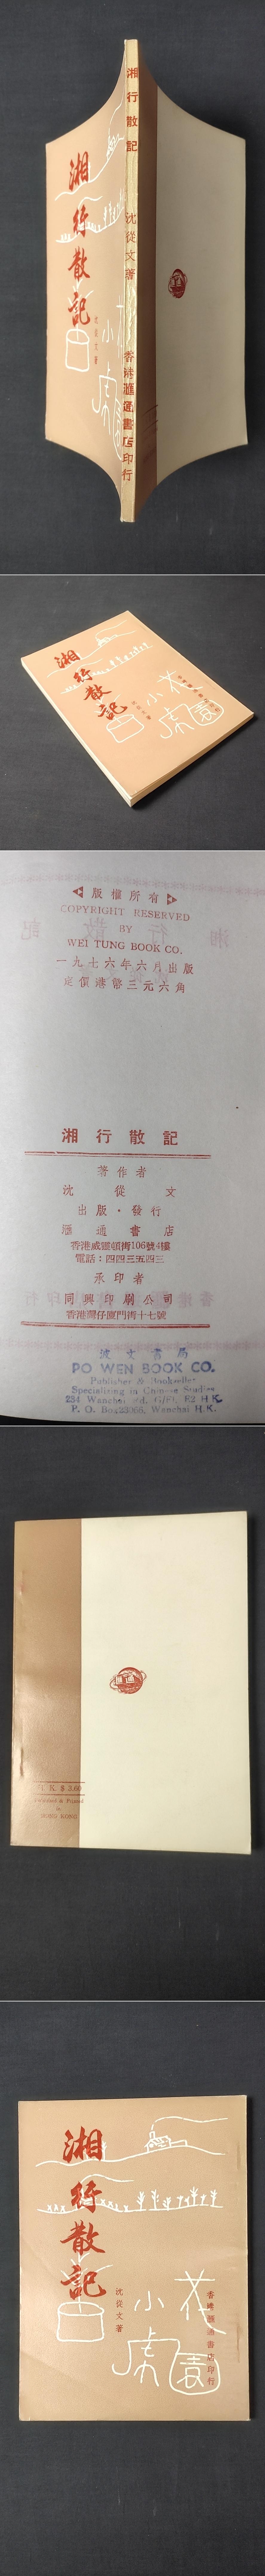 湘行散記
沈從文著
香港滙通書店印行
湘行散記
沈從文著
小虎
湘行散記
沈從文著
小虎花園
版權所有
COPYRIGHT RESERVED
BY
WEI TUNG BOOK CO.
一九七六年六月出版
定價港幣三元六角
湘行散記
著作者
沈從文
出版·發行
滙通書店
香港威靈頓街106號4樓
電話：四四三五四三
承印者
同興印刷公司
香港灣仔廈門街十七號
波文書局
PO WEN BOOK CO.
Publisher & Bookseller
Specializing in Chinese Studies
234 Wanchai Rd. H.K.
P. O. Box Wanchai H.K.
K. $ 3.60
Printed
in
HONG KONG
湘行散記
沈從文著
小虎花園
香港滙通書店印行